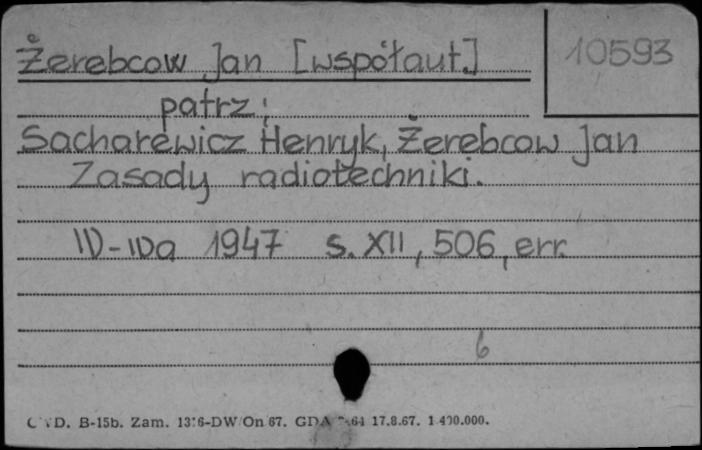 Żerebcow Jan [współaut.]
10593
patrz:
Sacharewicz Henryk, Żerebcow Jan
Zasady radiotechniki.
W-wa 1947 s. XII, 506, err.
6
D. B-15b. Zam. 1316-DW/On/67. GDA 17.8.67. 1.400.000.